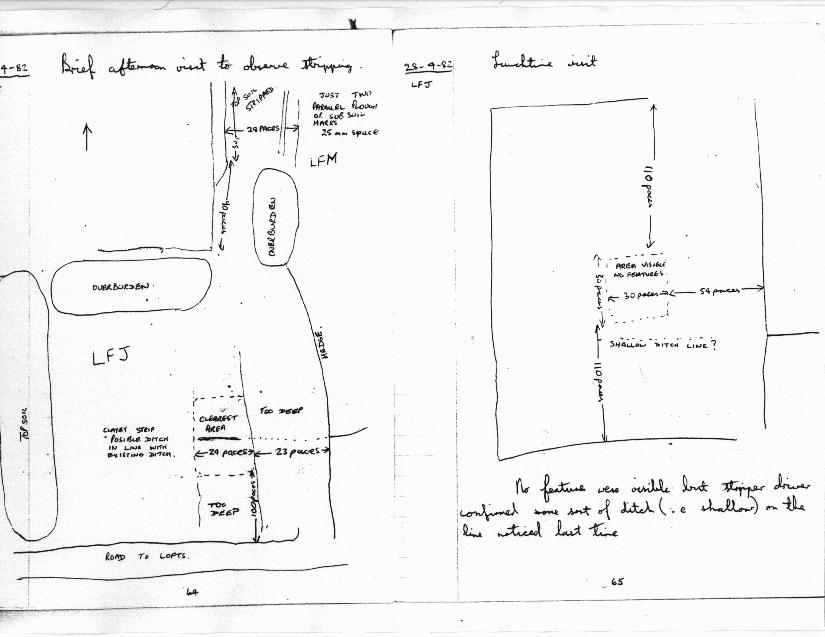 4-82
Brief afternoon visit to observe stripping.
TOP SOIL
STRIPPED
JUST TWO
PARALLEL PLOUGH
OR SUB SOIL
MARKS
25 mm space
28 PACES
LFM
OVERBURDEN
OVERBURDEN
HEDGE.
LFJ
TOP SOIL
CLAYEY STRIP
POSIBLE DITCH
IN LINE WITH
EXISTING DITCH.
CLEAREST
AREA
TOO DEEP
29 paces
23 paces
100 paces
TOO
DEEP
ROAD TO LOFTS.
64
28-9-82
Lunchtime visit
LFJ
110 paces
AREA VISIBLE
NO FEATURES.
30 paces
30 paces
54 paces
SHALLOW DITCH LINE?
110 paces
No feature were visible but stripper driver
confirmed some sort of ditch (i.e shallow) on the
line noticed last time
65